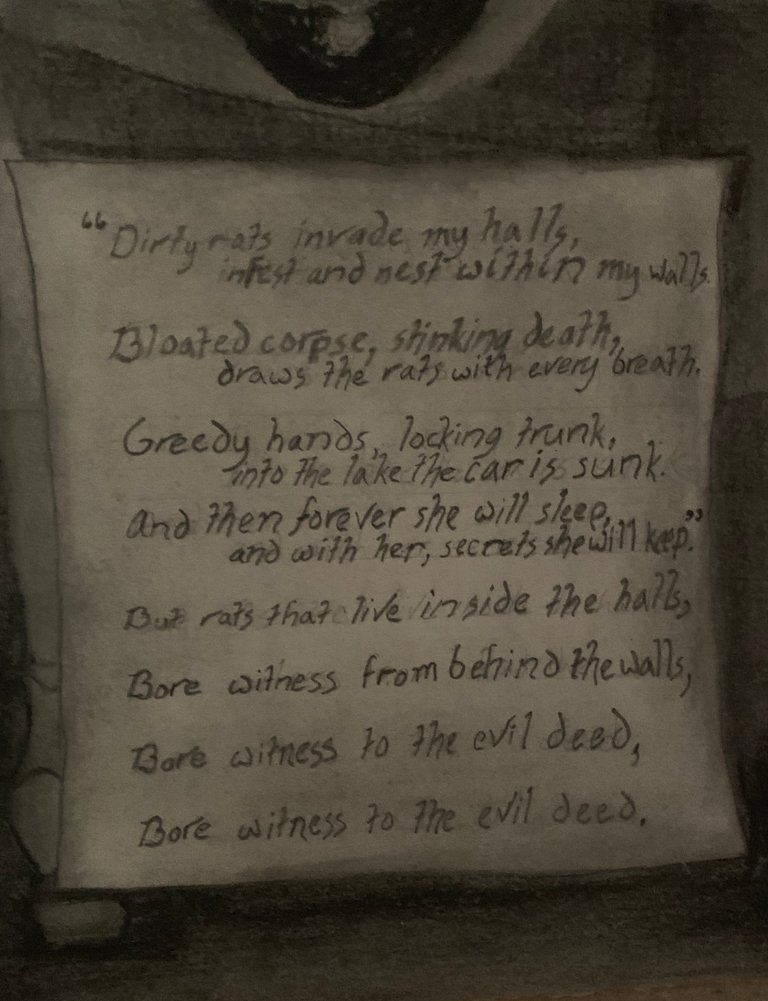 “Dirty rats invade my halls,
infest and nest within my walls.
Bloated corpse, stinking death,
draws the rats with every breath.
Greedy hands, locking trunk,
into the lake the car is sunk.
And then forever she will sleep,
and with her, secrets she will keep.”
But rats that live inside the halls,
Bore witness from behind the walls,
Bore witness to the evil deed,
Bore witness to the evil deed.